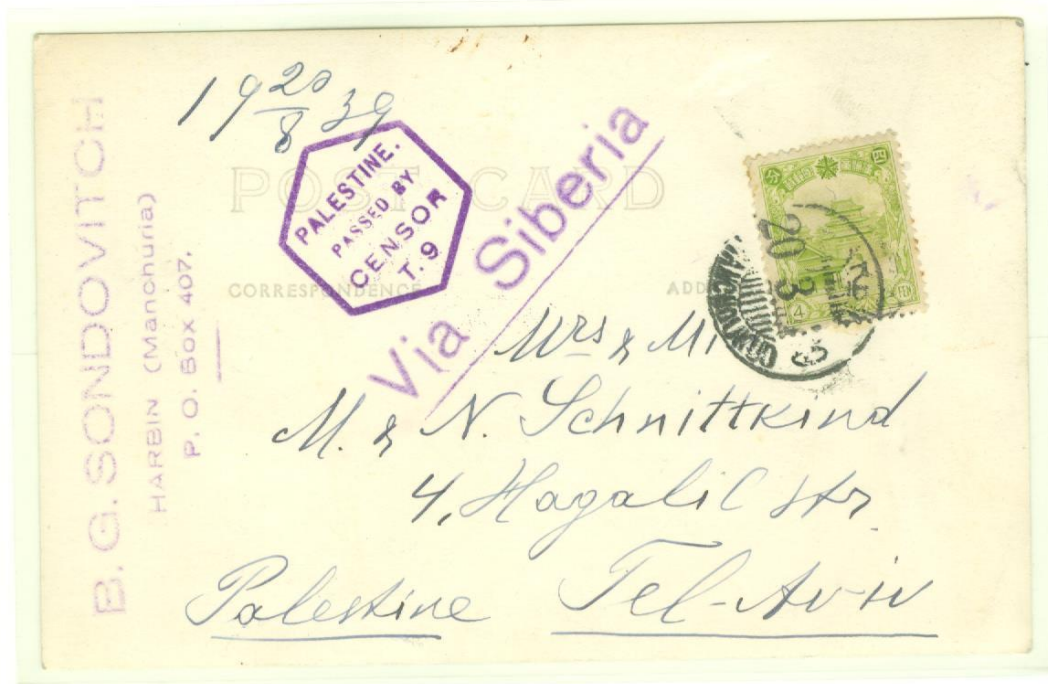 B. G. SONDOVITCH
HARBIN (Manchuria)
P. O. Box 407.
19 20/8 39
POST CARD
PALESTINE.
PASSED BY
CENSOR
T. 9
Via Siberia
CORRESPONDENCE
四
分
4
FEN
20
Mrs & Mr
M. & N. Schnittkind
4, Hagalil str.
Palestine Tel-Aviv